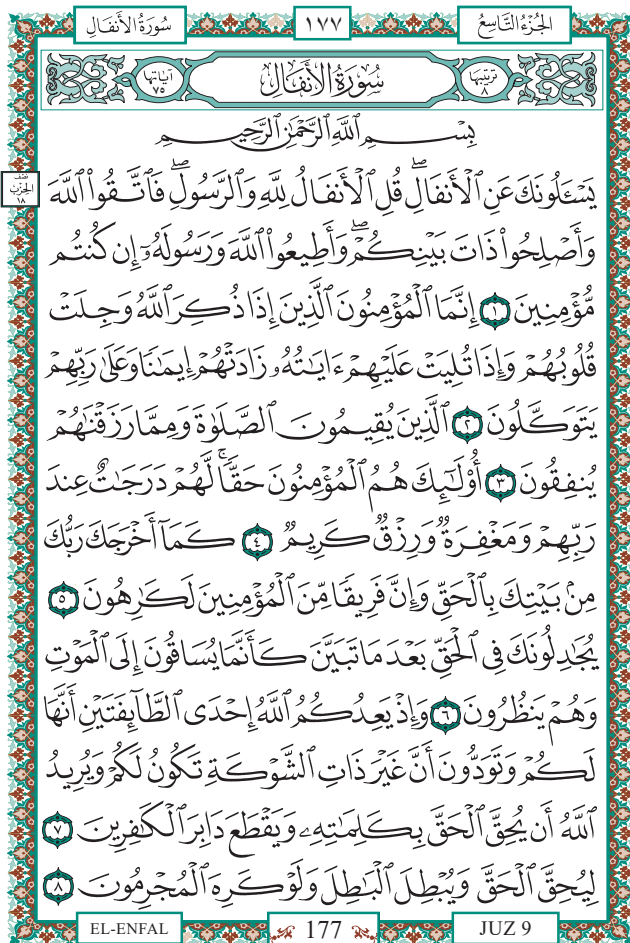 سُورَةُ الْأَنفَالِ ١٧٧ الجُزْءُ التَّاسِعُ
آيَاتُهَا ٧٥ سُورَةُ الْأَنفَالِ تَرْتِيبُهَا ٨
بِسْمِ ٱللَّهِ ٱلرَّحْمَٰنِ ٱلرَّحِيمِ
نصف الحزب ١٨
يَسْـَٔلُونَكَ عَنِ ٱلْأَنفَالِۖ قُلِ ٱلْأَنفَالُ لِلَّهِ وَٱلرَّسُولِۖ فَٱتَّقُوا۟ ٱللَّهَ
وَأَصْلِحُوا۟ ذَاتَ بَيْنِكُمْۖ وَأَطِيعُوا۟ ٱللَّهَ وَرَسُولَهُۥٓ إِن كُنتُم
مُّؤْمِنِينَ ١ إِنَّمَا ٱلْمُؤْمِنُونَ ٱلَّذِينَ إِذَا ذُكِرَ ٱللَّهُ وَجِلَتْ
قُلُوبُهُمْ وَإِذَا تُلِيَتْ عَلَيْهِمْ ءَايَٰتُهُۥ زَادَتْهُمْ إِيمَٰنًا وَعَلَىٰ رَبِّهِمْ
يَتَوَكَّلُونَ ٢ ٱلَّذِينَ يُقِيمُونَ ٱلصَّلَوٰةَ وَمِمَّا رَزَقْنَٰهُمْ
يُنفِقُونَ ٣ أُو۟لَٰٓئِكَ هُمُ ٱلْمُؤْمِنُونَ حَقًّاۚ لَّهُمْ دَرَجَٰتٌ عِندَ
رَبِّهِمْ وَمَغْفِرَةٌ وَرِزْقٌ كَرِيمٌ ٤ كَمَآ أَخْرَجَكَ رَبُّكَ
مِنۢ بَيْتِكَ بِٱلْحَقِّ وَإِنَّ فَرِيقًا مِّنَ ٱلْمُؤْمِنِينَ لَكَٰرِهُونَ ٥
يُجَٰدِلُونَكَ فِى ٱلْحَقِّ بَعْدَ مَا تَبَيَّنَ كَأَنَّمَا يُسَاقُونَ إِلَى ٱلْمَوْتِ
وَهُمْ يَنظُرُونَ ٦ وَإِذْ يَعِدُكُمُ ٱللَّهُ إِحْدَى ٱلطَّآئِفَتَيْنِ أَنَّهَا
لَكُمْ وَتَوَدُّونَ أَنَّ غَيْرَ ذَاتِ ٱلشَّوْكَةِ تَكُونُ لَكُمْ وَيُرِيدُ
ٱللَّهُ أَن يُحِقَّ ٱلْحَقَّ بِكَلِمَٰتِهِۦ وَيَقْطَعَ دَابِرَ ٱلْكَٰفِرِينَ ٧
لِيُحِقَّ ٱلْحَقَّ وَيُبْطِلَ ٱلْبَٰطِلَ وَلَوْ كَرِهَ ٱلْمُجْرِمُونَ ٨
EL-ENFAL 177 JUZ 9